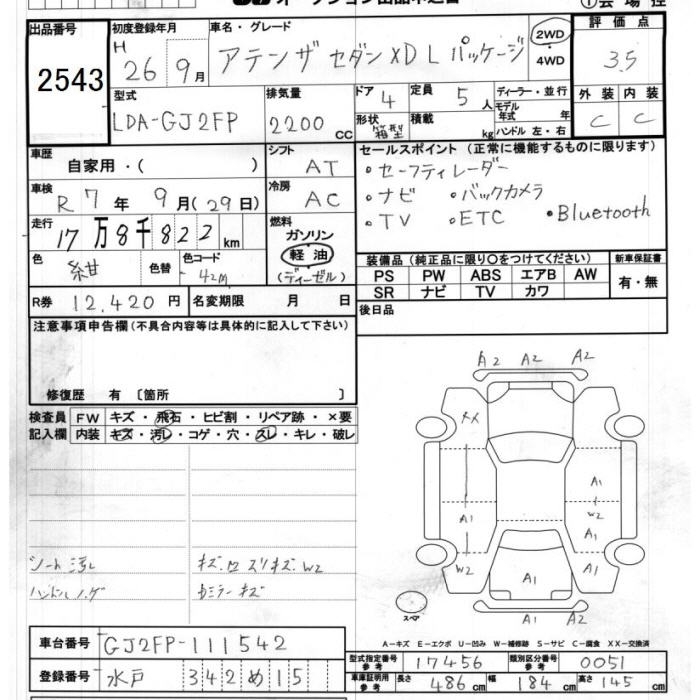 出品番号 初度登録年月 車名・グレード 評価点
2543 H 26年 9月 アテンザ セダン XD L パッケージ 2WD・4WD 3.5
型式 排気量 ドア 4 定員 5人 ディーラー・並行 外装 内装
LDA-GJ2FP 2200cc 形状 箱型 積載 kg モデル年式 年 ハンドル 左・右 C C
車歴 自家用・( ) シフト AT セールスポイント (正常に機能するものに限ります)
車検 R 7年 9月(29日) 冷房 AC ・セーフティレーダー
・ナビ ・バックカメラ
・TV ・ETC ・Bluetooth
走行 17万8千822km 燃料 ガソリン 軽油 (ディーゼル)
色 紺 色替 色コード 42M
装備品 (純正品に限り○をつけてください) 新車保証書
PS PW ABS エアB AW 有・無
SR ナビ TV カワ
R券 12,420円 名変期限 月 日 後日品
注意事項申告欄(不具合内容等は具体的に記入して下さい)
修復歴 有 [箇所 ]
検査員 FW キズ・飛石・ヒビ割・リペア跡・×要
記入欄 内装 キズ・汚レ・コゲ・穴・スレ・キレ・破レ
A2 A2 A2
XX
A1
W2
A1 A1
W2 A1 A1
A1 A2
スペア
シート汚レ
ハンドルハゲ
A-キズ E-エクボ U-凹み W-補修跡 S-サビ C-腐食 XX-交換済
車台番号 GJ2FP-111542
型式指定番号 参考 17456 類別区分番号 参考 0051
登録番号 水戸 342 め 15
車庫証明用 参考 長さ 486cm 幅 184cm 高さ 145cm